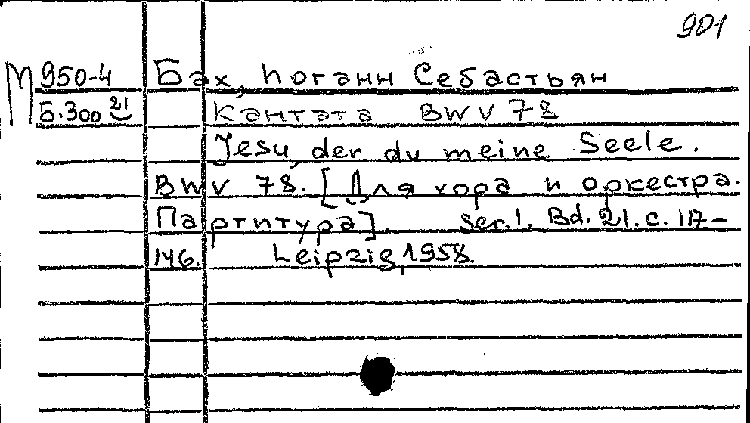 901
М 950-4 Бах, Иоганн Себастьян
Б.300 21 Кантата BWV 78
Jesu, der du meine Seele.
BWV 78. [Для хора и оркестра.
Партитура]. Ser.1. Bd.21. с. 117-
146. Leipzig, 1958.